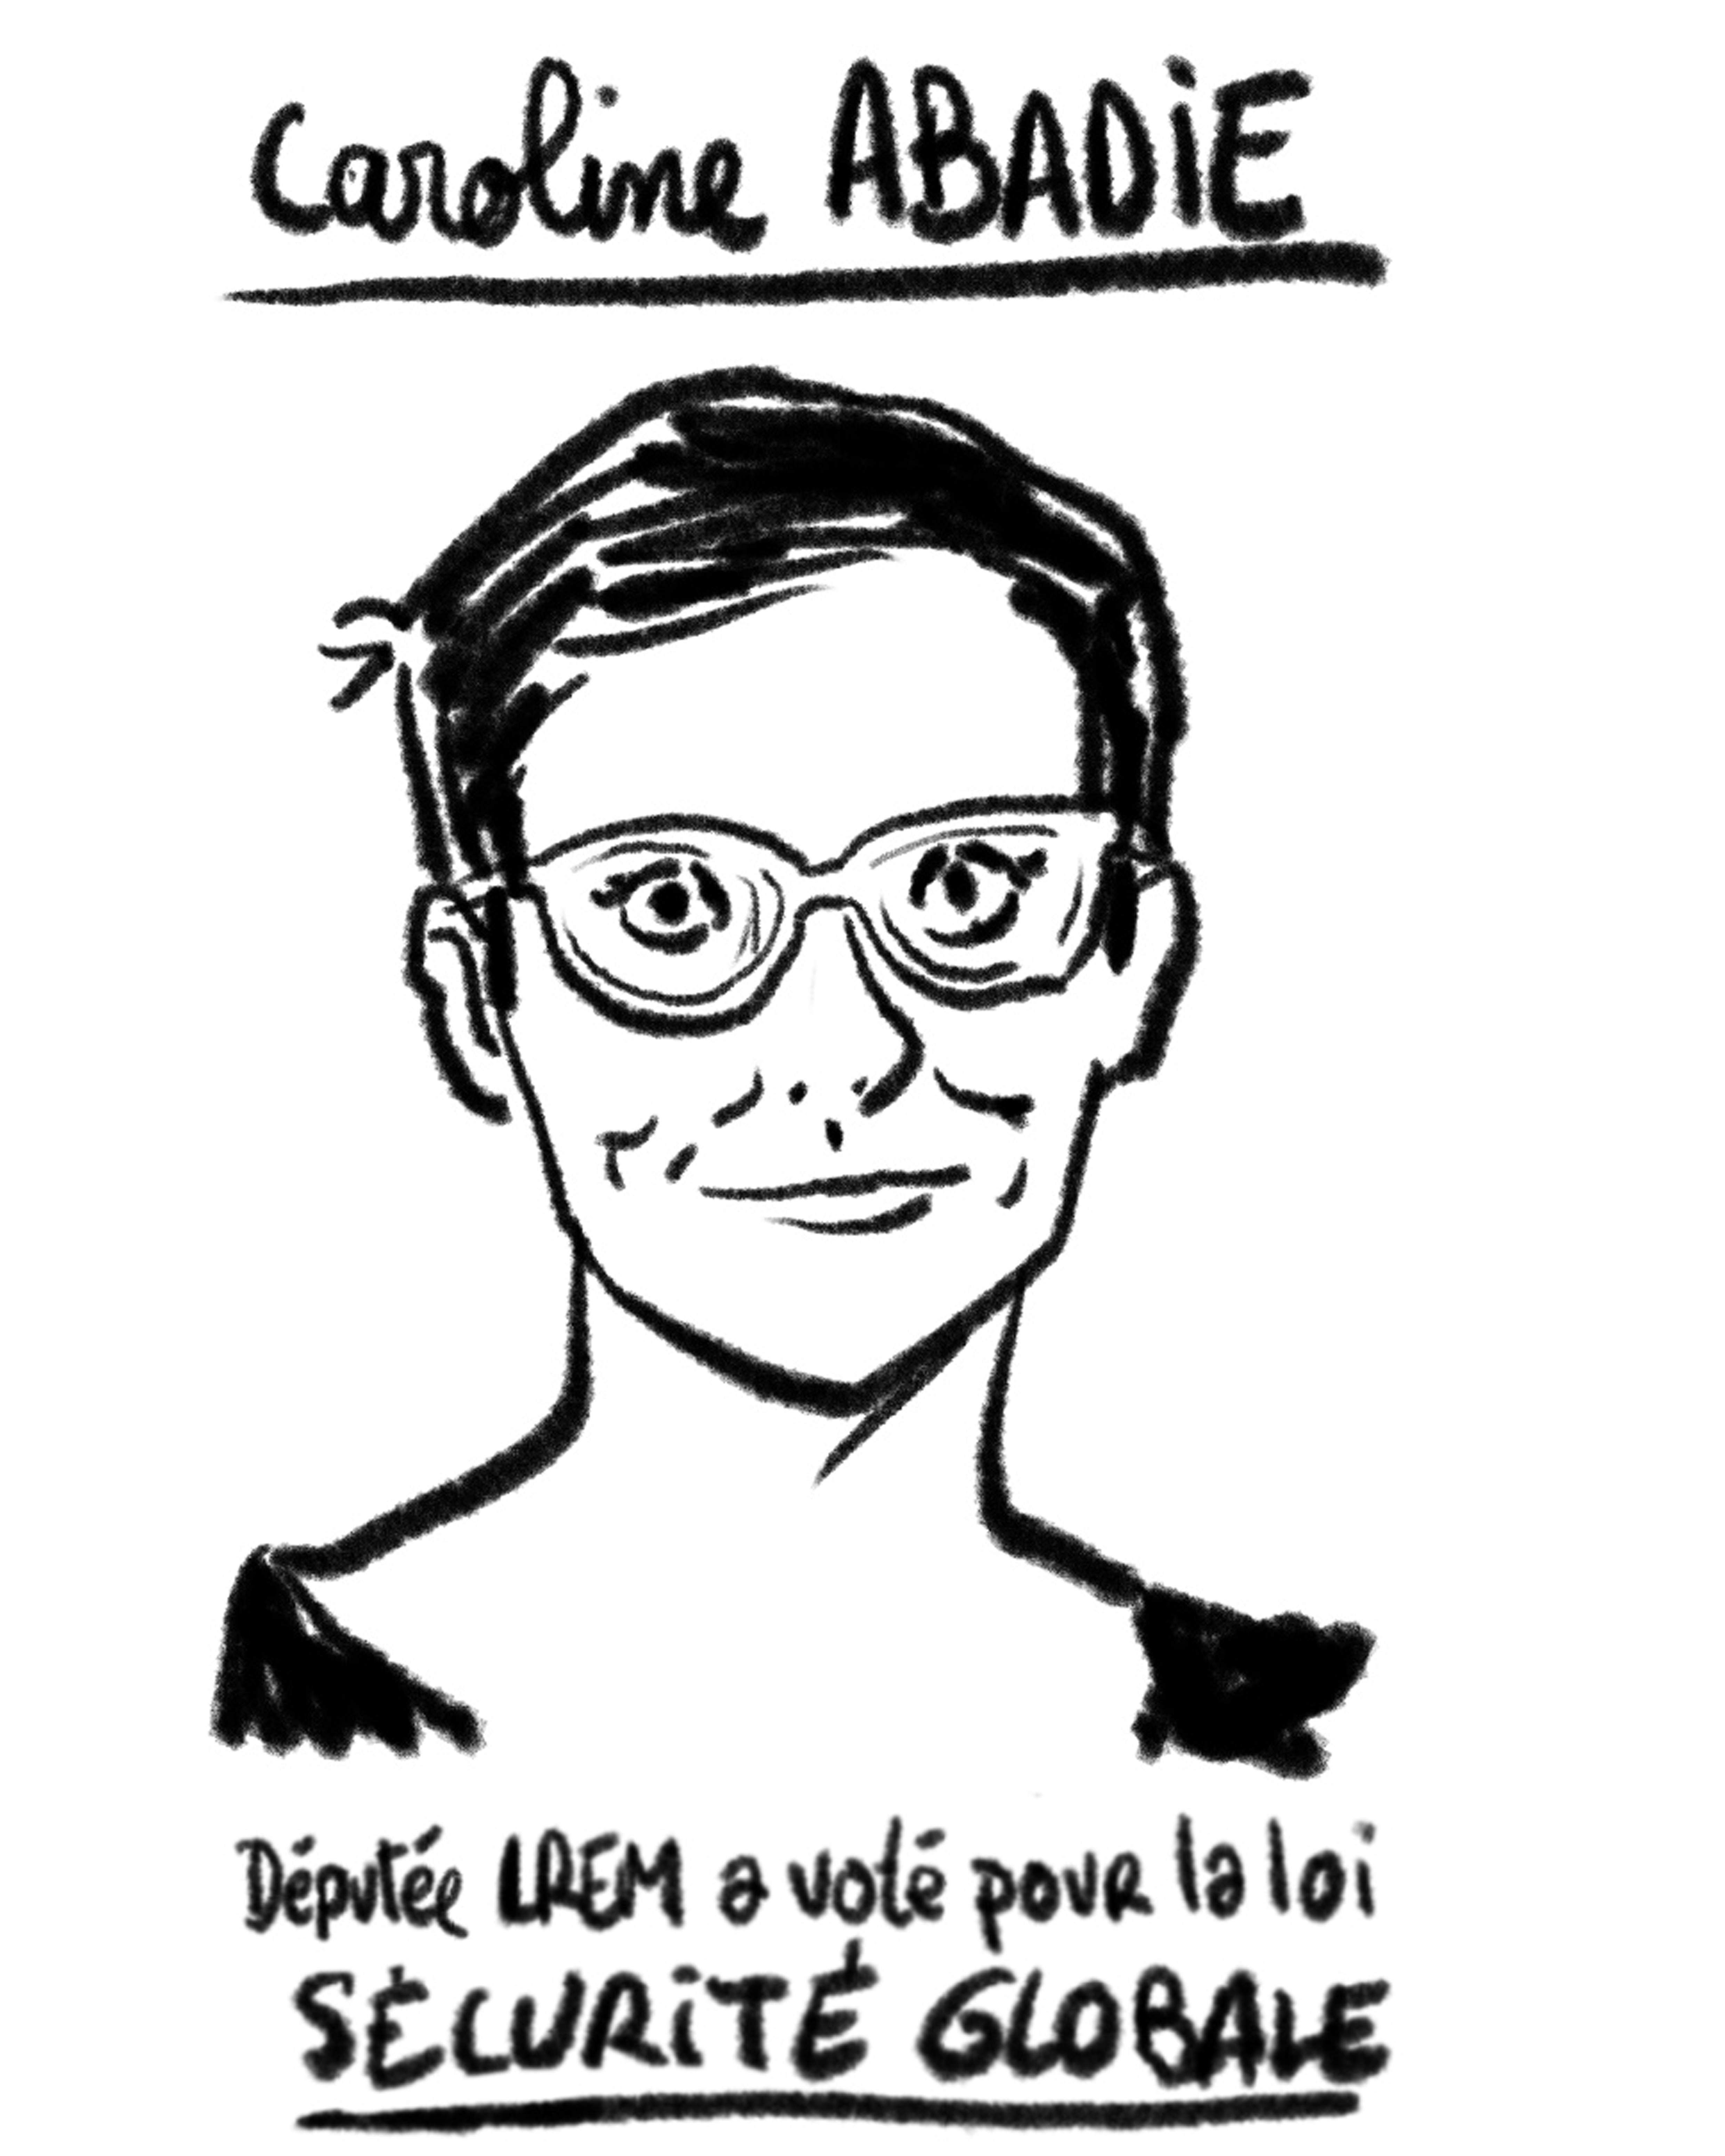 Caroline ABADiE
Députée LREM a voté pour la loi
SÉCURiTÉ GLOBALE